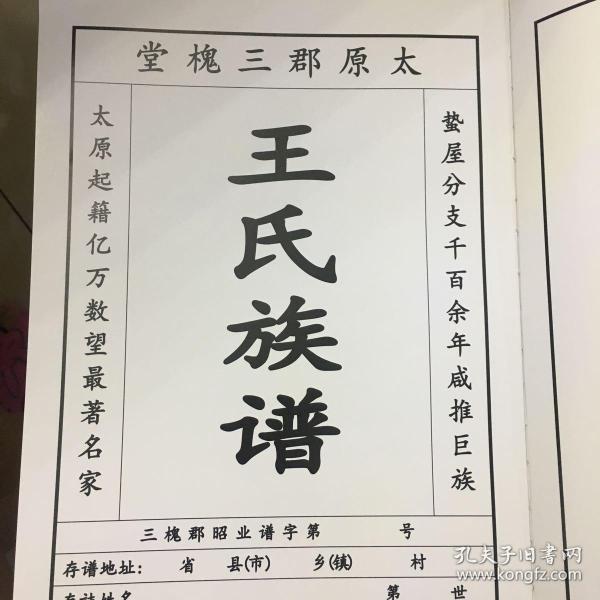 太原郡三槐堂
蛰屋分支千百余年咸推巨族
王氏族谱
太原起籍亿万数望最著名家
三槐郡昭业谱字第 号
存谱地址： 省 县(市) 乡(镇) 村
第 世
孔夫子旧书网
www.kongfz.com